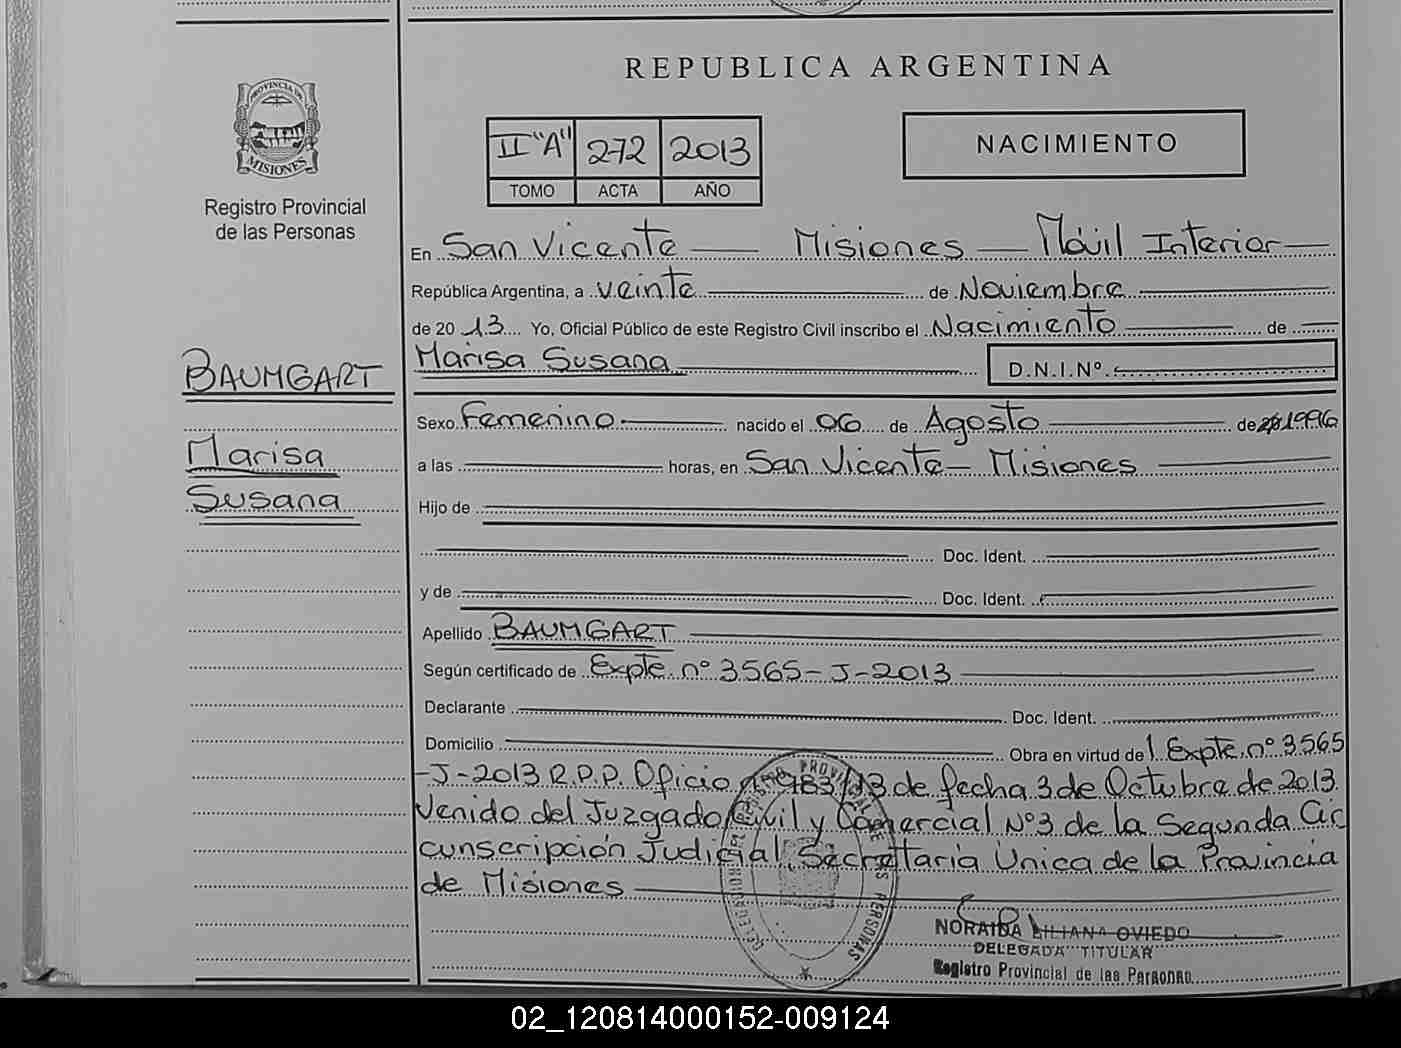 REPUBLICA ARGENTINA
PROVINCIA DE
MISIONES
Registro Provincial
de las Personas
II "A" 272 2013
TOMO ACTA AÑO
NACIMIENTO
En San Vicente — Misiones — Móvil Interior —
República Argentina, a veinte de Noviembre
de 20 13 Yo, Oficial Público de este Registro Civil inscribo el Nacimiento de
Marisa Susana D.N.I.Nº.
BAUMGART
Marisa
Susana
Sexo Femenino nacido el 06 de Agosto de 1996
a las horas, en San Vicente - Misiones
Hijo de
Doc. Ident.
y de Doc. Ident.
Apellido BAUMGART
Según certificado de Expte. nº 3565-J-2013
Declarante Doc. Ident.
Domicilio Obra en virtud de Expte. nº 3565
-J-2013 R.P.P. Oficio nº 983/13 de fecha 3 de Octubre de 2013.
Venido del Juzgado Civil y Comercial Nº3 de la Segunda Cir
cunscripción Judicial, Secretaría Unica de la Provincia
de Misiones
NORAIDA LILIANA OVIEDO
DELEGADA TITULAR
Registro Provincial de las Personas
02_120814000152-009124